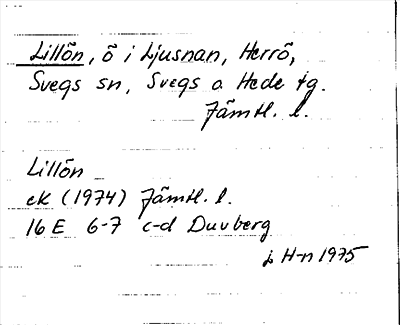 Lillön, ö i Ljusnan, Herrö,
Svegs sn, Svegs o Hede tg.
Jämtl. l.
Lillön
ek (1974) Jämtl. l.
16 E 6-7 c-d Duvberg
H-n 1975